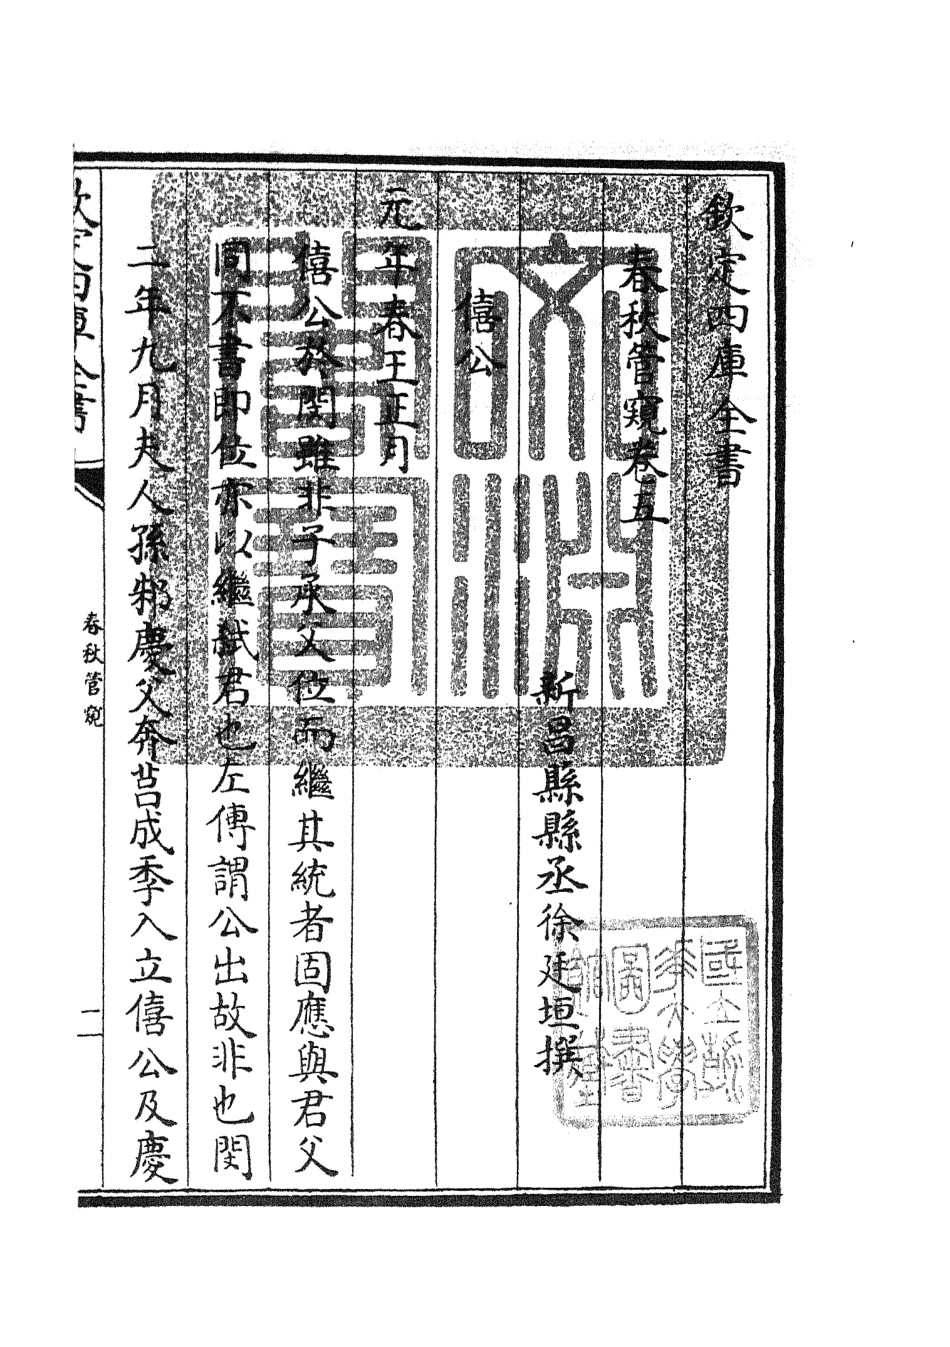 欽定四庫全書
春秋管窺卷五
新昌縣縣丞徐廷垣撰
僖公
元年春王正月
僖公於閔雖非子承父位而繼其統者固應與君父
同不書即位亦以繼弑君也左傳謂公出故非也閔
二年九月夫人孫邾慶父奔莒成季入立僖公及慶
欽定四庫全書
春秋管窺
一
文淵閣寶